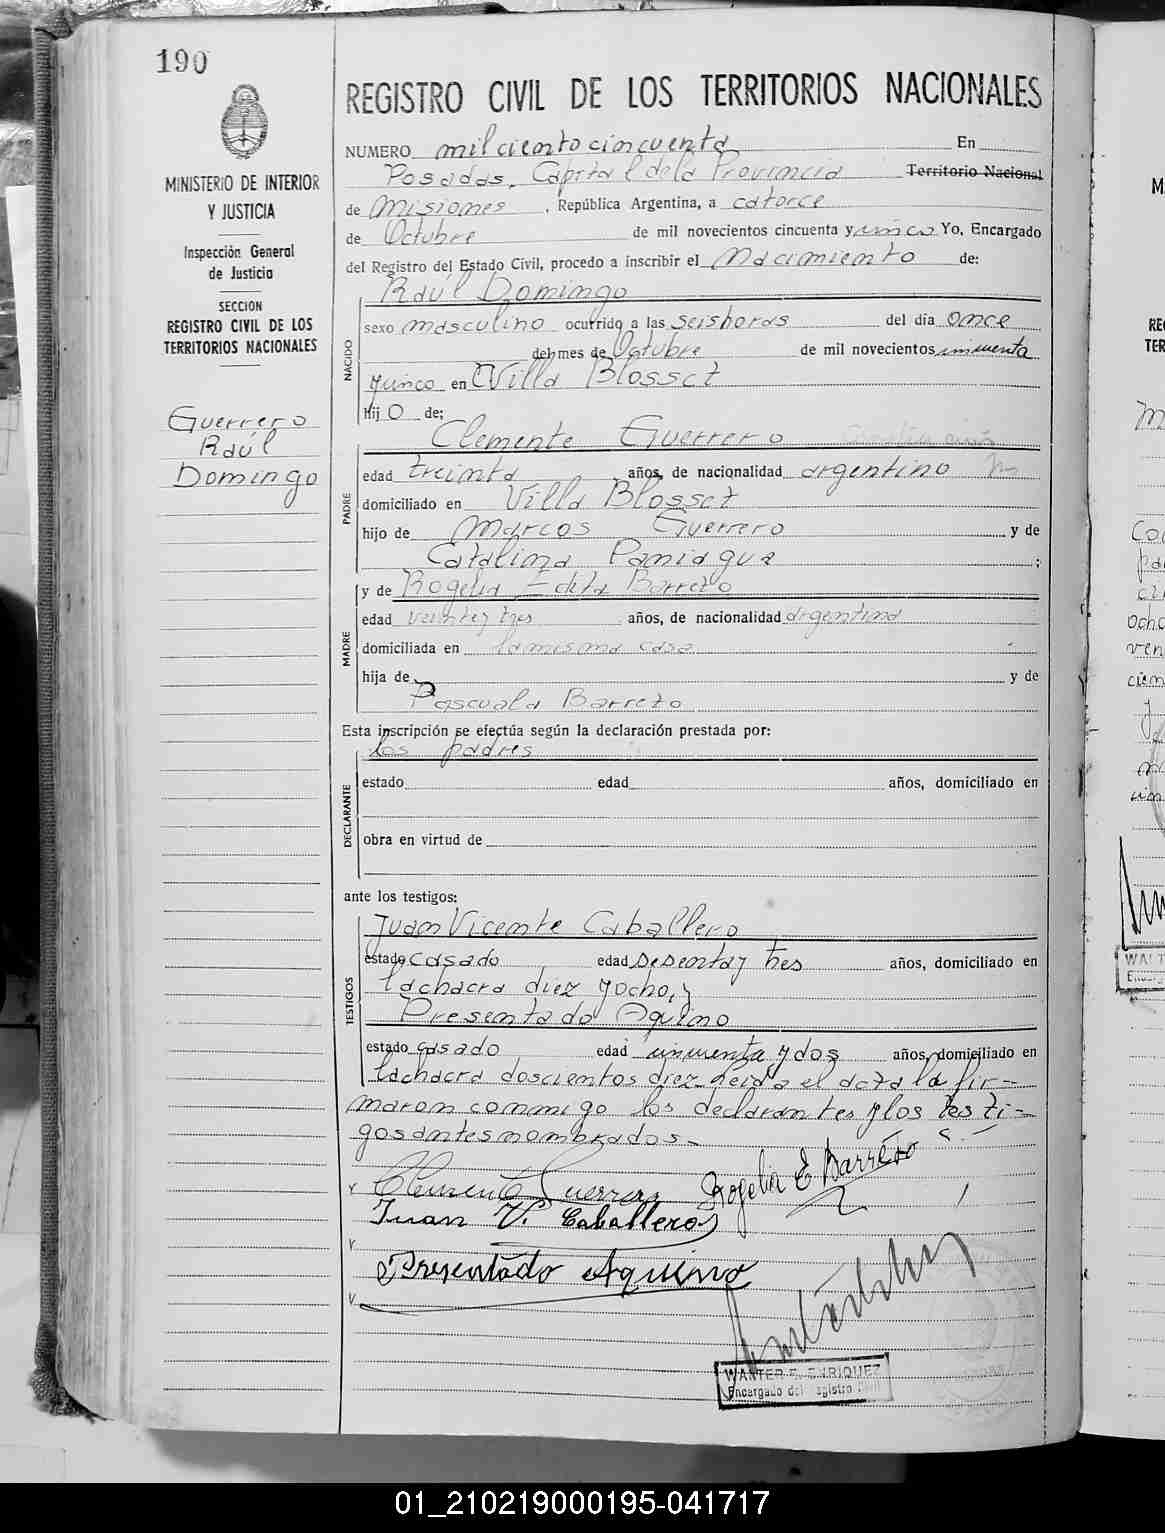 190
MINISTERIO DE INTERIOR
Y JUSTICIA
Inspección General
de Justicia
SECCION
REGISTRO CIVIL DE LOS
TERRITORIOS NACIONALES
Guerrero
Raúl
Domingo
REGISTRO CIVIL DE LOS TERRITORIOS NACIONALES
NUMERO mil ciento cincuenta En
Posadas, Capital de la Provincia Territorio Nacional
de Misiones, República Argentina, a catorce
de Octubre de mil novecientos cincuenta y cinco Yo, Encargado
del Registro del Estado Civil, procedo a inscribir el Nacimiento de:
NACIDO
Raúl Domingo
sexo masculino ocurrido a las seis horas del día once
del mes de Octubre de mil novecientos cincuenta
y cinco en Villa Blosset
hijo de:
PADRE
Clemente Guerrero
edad treinta años, de nacionalidad argentino
domiciliado en Villa Blosset
hijo de Marcos Guerrero y de
Catalina Paniagua;
MADRE
y de Rogelia Edita Barreto
edad veinte y tres años, de nacionalidad argentina
domiciliada en la misma casa
hija de y de
Pascuala Barreto
Esta inscripción se efectúa según la declaración prestada por:
los padres
DECLARANTE
estado edad años, domiciliado en
obra en virtud de
ante los testigos:
TESTIGOS
Juan Vicente Caballero
estado casado edad sesenta y tres años, domiciliado en
la chacra diez y ocho, y
Presentado Aquino
estado casado edad cincuenta y dos años, domiciliado en
la chacra doscientos diez. Leída el acta la fir-
maron conmigo los declarantes y los testi-
gos antes nombrados.-
Clemente Guerrero Rogelia E Barreto
Juan V. Caballero
Presentado Aquino
WALTER E. ENRIQUEZ
Encargado del Registro Civil
01_210219000195-041717